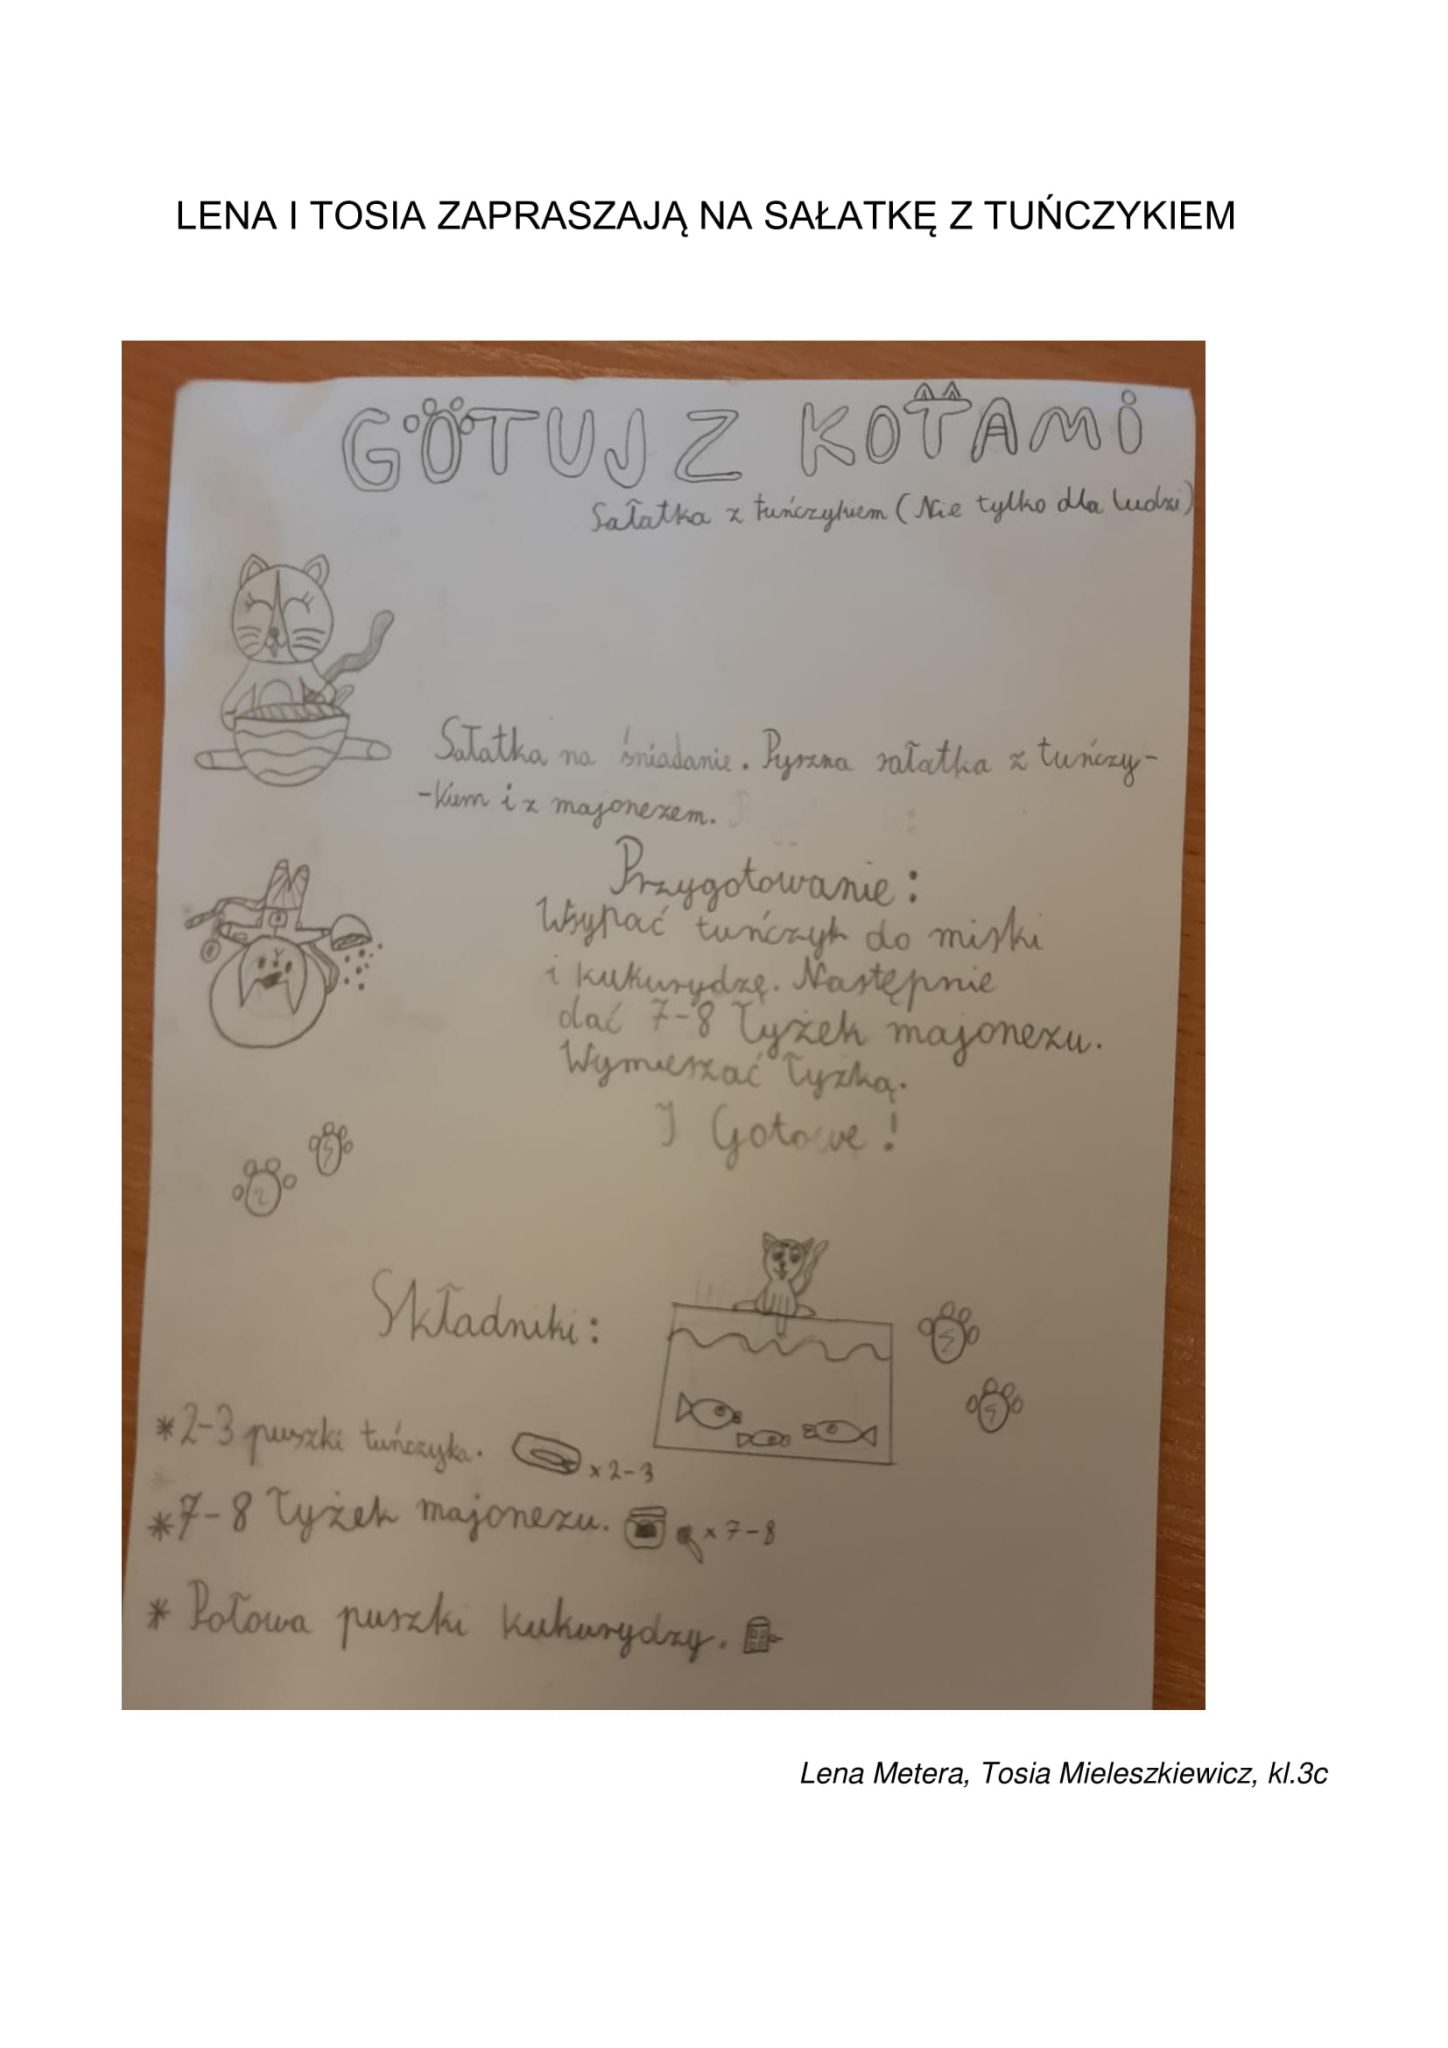 LENA I TOSIA ZAPRASZAJĄ NA SAŁATKĘ Z TUŃCZYKIEM
GOTUJ Z KOTAMI
Sałatka z tuńczykiem (Nie tylko dla ludzi)
Sałatka na śniadanie. Pyszna sałatka z tuńczy-
-kiem i z majonezem.
Przygotowanie:
Wsypać tuńczyk do miski
i kukurydzę. Następnie
dać 7-8 łyżek majonezu.
Wymieszać łyżką.
I Gotowe!
Składniki:
*2-3 puszki tuńczyka. x2-3
*7-8 łyżek majonezu. x7-8
* Połowa puszki kukurydzy.
Lena Metera, Tosia Mieleszkiewicz, kl.3c